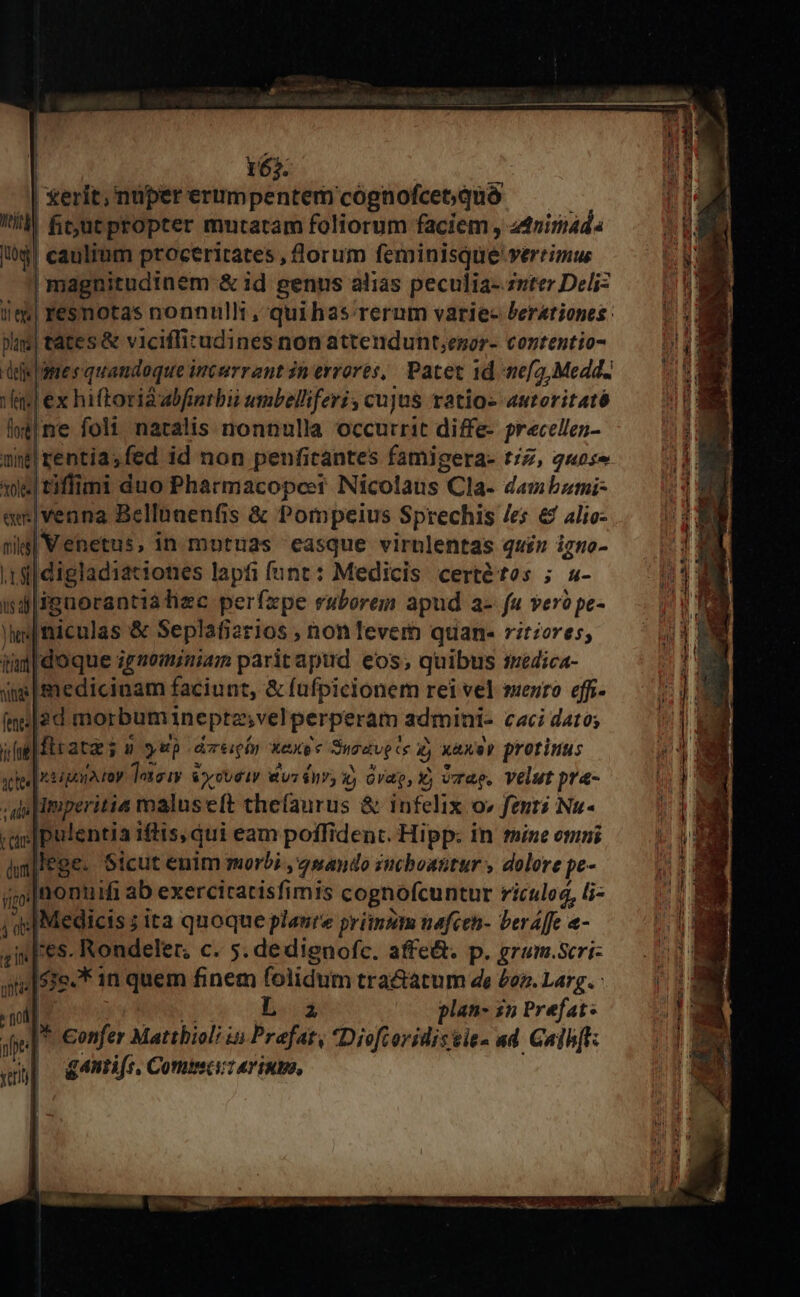 163.
xerit, nuper erumpentem cognoscet, quô
fit, ut propter mutatam foliorum faciem, Animad-
caulium proceritates, florum seminisque vertimus
magnitudinem & id genus alias peculia- inter Deli-
res notas nonnulli, qui has rerum varie- berationes
tates & vicissitudines non attendunt, enor- contentio-
mes quandoque incurrant in errores, Patet id nesq, Medd.
ex historiâ absinthii umbelliferi, cujus ratio- autoritatê
ne soli natalis nonnulla occurrit diffe- præcellen-
rentia, sed id non pensitantes famigera- tiâ, quose
tissimi duo Pharmacopœi Nicolaus Cla- dam bumi-
venna Bellunensis & Pompeius Sprechis les & alio-
Venetus, in mutuas easque virulentas quin igno-
digladiationes lapsi sunt: Medicis certè tos ; u-
ignorantia hæc persæpe ruborem apud a- su verò pe-
niculas & Seplasiarios, non levem quan- ritiores,
doque ignominiam parit apud eos, quibus medica-
medicinam faciunt, & suspicionem rei vel mento effi-
ad morbum ineptæ, vel perperam admini- caci dato,
stratæ; ἡ γὰρ ἀπειρίη κακὸς θησαυρὸς ὶ κακὸν protinus
κειμήλιον τοῖσιν ἔχουσιν αὐτέην, ὶ ὄναρ, ὶ ὕπαρ. velut præ-
Imperitia malus est thesaurus & infelix o- senti Nu-
pulentia istis, qui eam possident. Hipp. in mine omni
lege. Sicut enim morbi, quando inchoantur, dolore pe-
nonnisi ab exercitatisfimis cognoscuntur riculoq, li-
Medicis ; ita quoque plantæ priinùm nascen- berâsse æ-
tes. Rondelet, c. 5. de dignosc. affect. p. grum. Scri-
* in quem finem solidum tractatum de bon. Larg.
L 2 plan- in Præfat.
* Confer Matthioli in Præfat, Dioscoridis
gantiss. Commentarium,